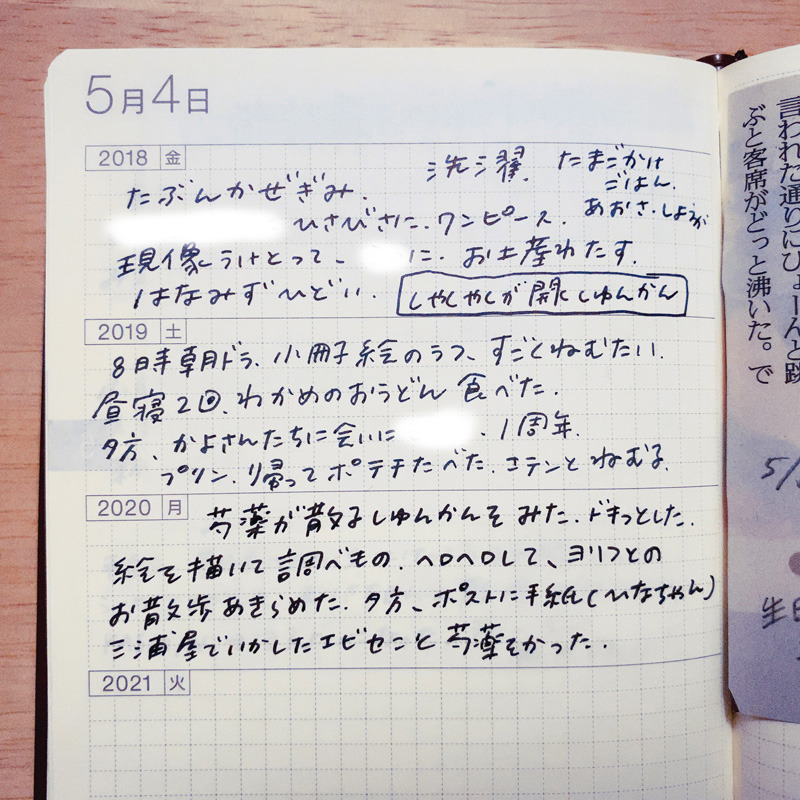 5月4日
2018 金
洗濯。 たまごかけ
ごはん。
たぶんかぜぎみ。
あおさ・しょうが
ひさびさに、ワンピース。
現像うけとって、 に、お土産わたす。
はなみずひどい。
しゃくやくが開くしゅんかん
2019 土
8時半朝ドラ、小冊子絵のラフ、すごくねむたい。
昼寝2回、わかめのおうどん食べた。
夕方、かよさんたちに会いに 、1周年。
プリン、帰ってポテチたべた。コテンとねむる。
2020 月
芍薬が散るしゅんかんをみた。ドキっとした。
絵を描いて調べもの。ヘロヘロして、ヨリフとの
お散歩あきらめた。夕方、ポストに手紙(ひなちゃん)
三浦屋でいかしたエビセンと芍薬をかった。
2021 火
言われた通りにぴょーんと跳
ぶと客席がどっと沸いた。で
5/
生